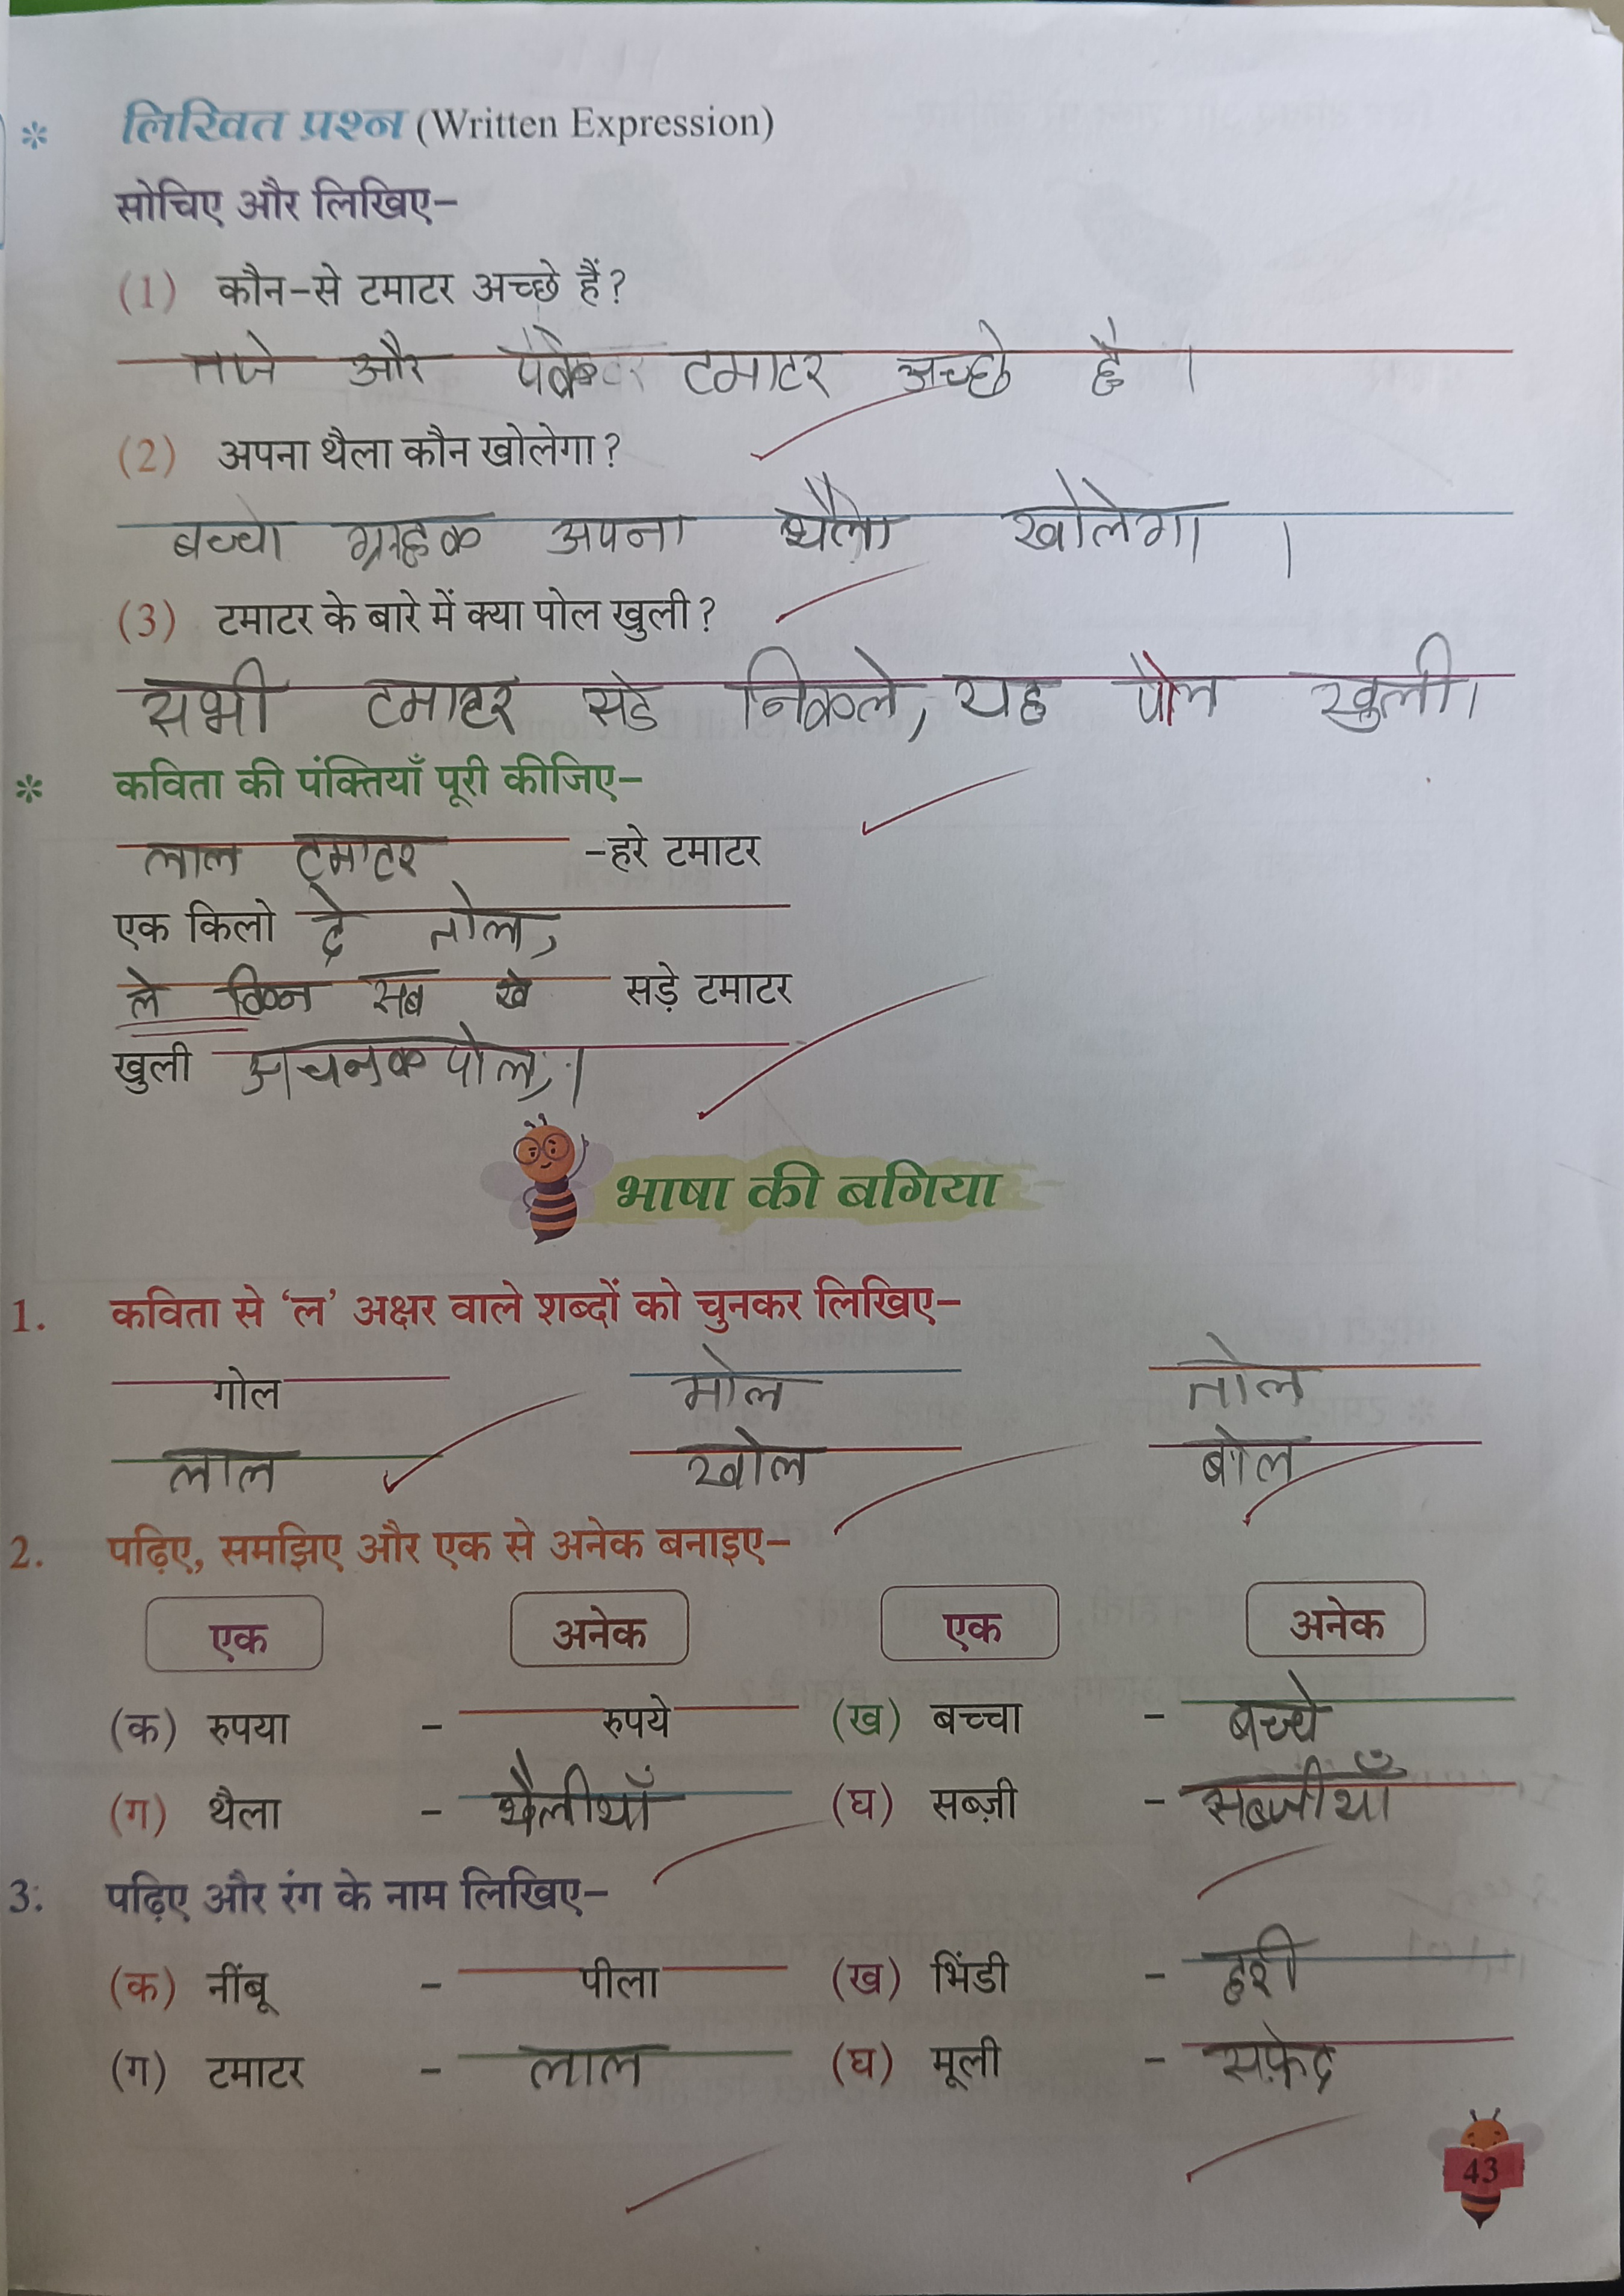 * लिखित प्रश्न (Written Expression)
सोचिए और लिखिए–
(1) कौन-से टमाटर अच्छे हैं?
ताजे और पक्के टमाटर अच्छे है ।
(2) अपना थैला कौन खोलेगा?
बच्चा ग्राहक अपना थैला खोलेगा ।
(3) टमाटर के बारे में क्या पोल खुली?
सभी टमाटर सडे निकले, यह पोल खुली।
* कविता की पंक्तियाँ पूरी कीजिए–
लाल टमाटर –हरे टमाटर
एक किलो दे तोल,
ले सब सड़े टमाटर
खुली अचानक पोल, ।
भाषा की बगिया
1. कविता से ‘ल’ अक्षर वाले शब्दों को चुनकर लिखिए–
गोल मोल तोल
लाल खोल बोल
2. पढ़िए, समझिए और एक से अनेक बनाइए–
एक अनेक एक अनेक
(क) रुपया – रुपये (ख) बच्चा – बच्चे
(ग) थैला – थैलीयाँ (घ) सब्ज़ी – सब्जीयाँ
3. पढ़िए और रंग के नाम लिखिए–
(क) नींबू – पीला (ख) भिंडी – हरी
(ग) टमाटर – लाल (घ) मूली – सफ़ेद
43